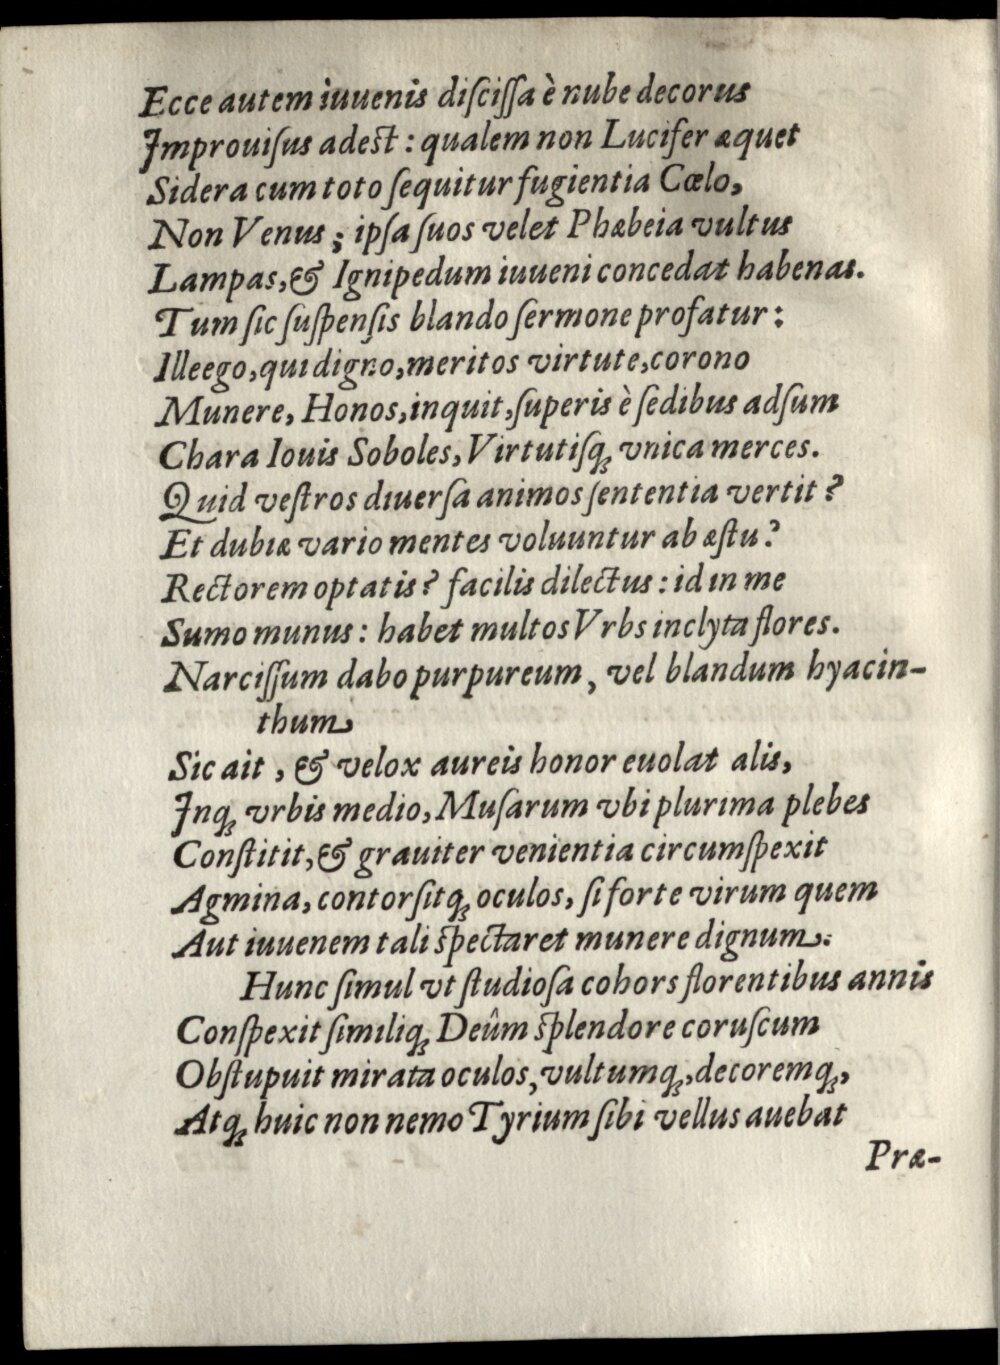 Ecce autem iuuenis diſciſſa è nube decorus
Improuiſus adest : qualem non Lucifer æquet
Sidera cum toto ſequitur fugientia Cœlo,
Non Venus ; ipſa ſuos velet Phæbeia vultus
Lampas, & Ignipedum iuueni concedat habenas.
Tum ſic ſuſpenſis blando ſermone profatur :
Ille ego, qui digno, meritos virtute, corono
Munere, Honos, inquit, ſuperis è ſedibus adſum
Chara Iouis Soboles, Virtutisq́; vnica merces.
Quid veſtros diuerſa animos ſententia vertit ?
Et dubiæ vario mentes voluuntur ab æſtu ?
Rectorem optatis ? facilis dilectus : id in me
Sumo munus : habet multos Vrbs inclyta flores.
Narciſſum dabo purpureum, vel blandum hyacin-
thum
Sic ait, & velox aureis honor euolat alis,
Inq; vrbis medio, Muſarum vbi plurima plebes
Conſtitit, & grauiter venientia circumſpexit
Agmina, contorſitq; oculos, ſi forte virum quem
Aut iuuenem tali ſpectaret munere dignum.
Hunc ſimul vt ſtudioſa cohors florentibus annis
Conſpexit ſimiliq; Deûm ſplendore coruſcum
Obſtupuit mirata oculos, vultumq;, decoremq;,
Atq; huic non nemo Tyrium ſibi vellus auebat
Præ-